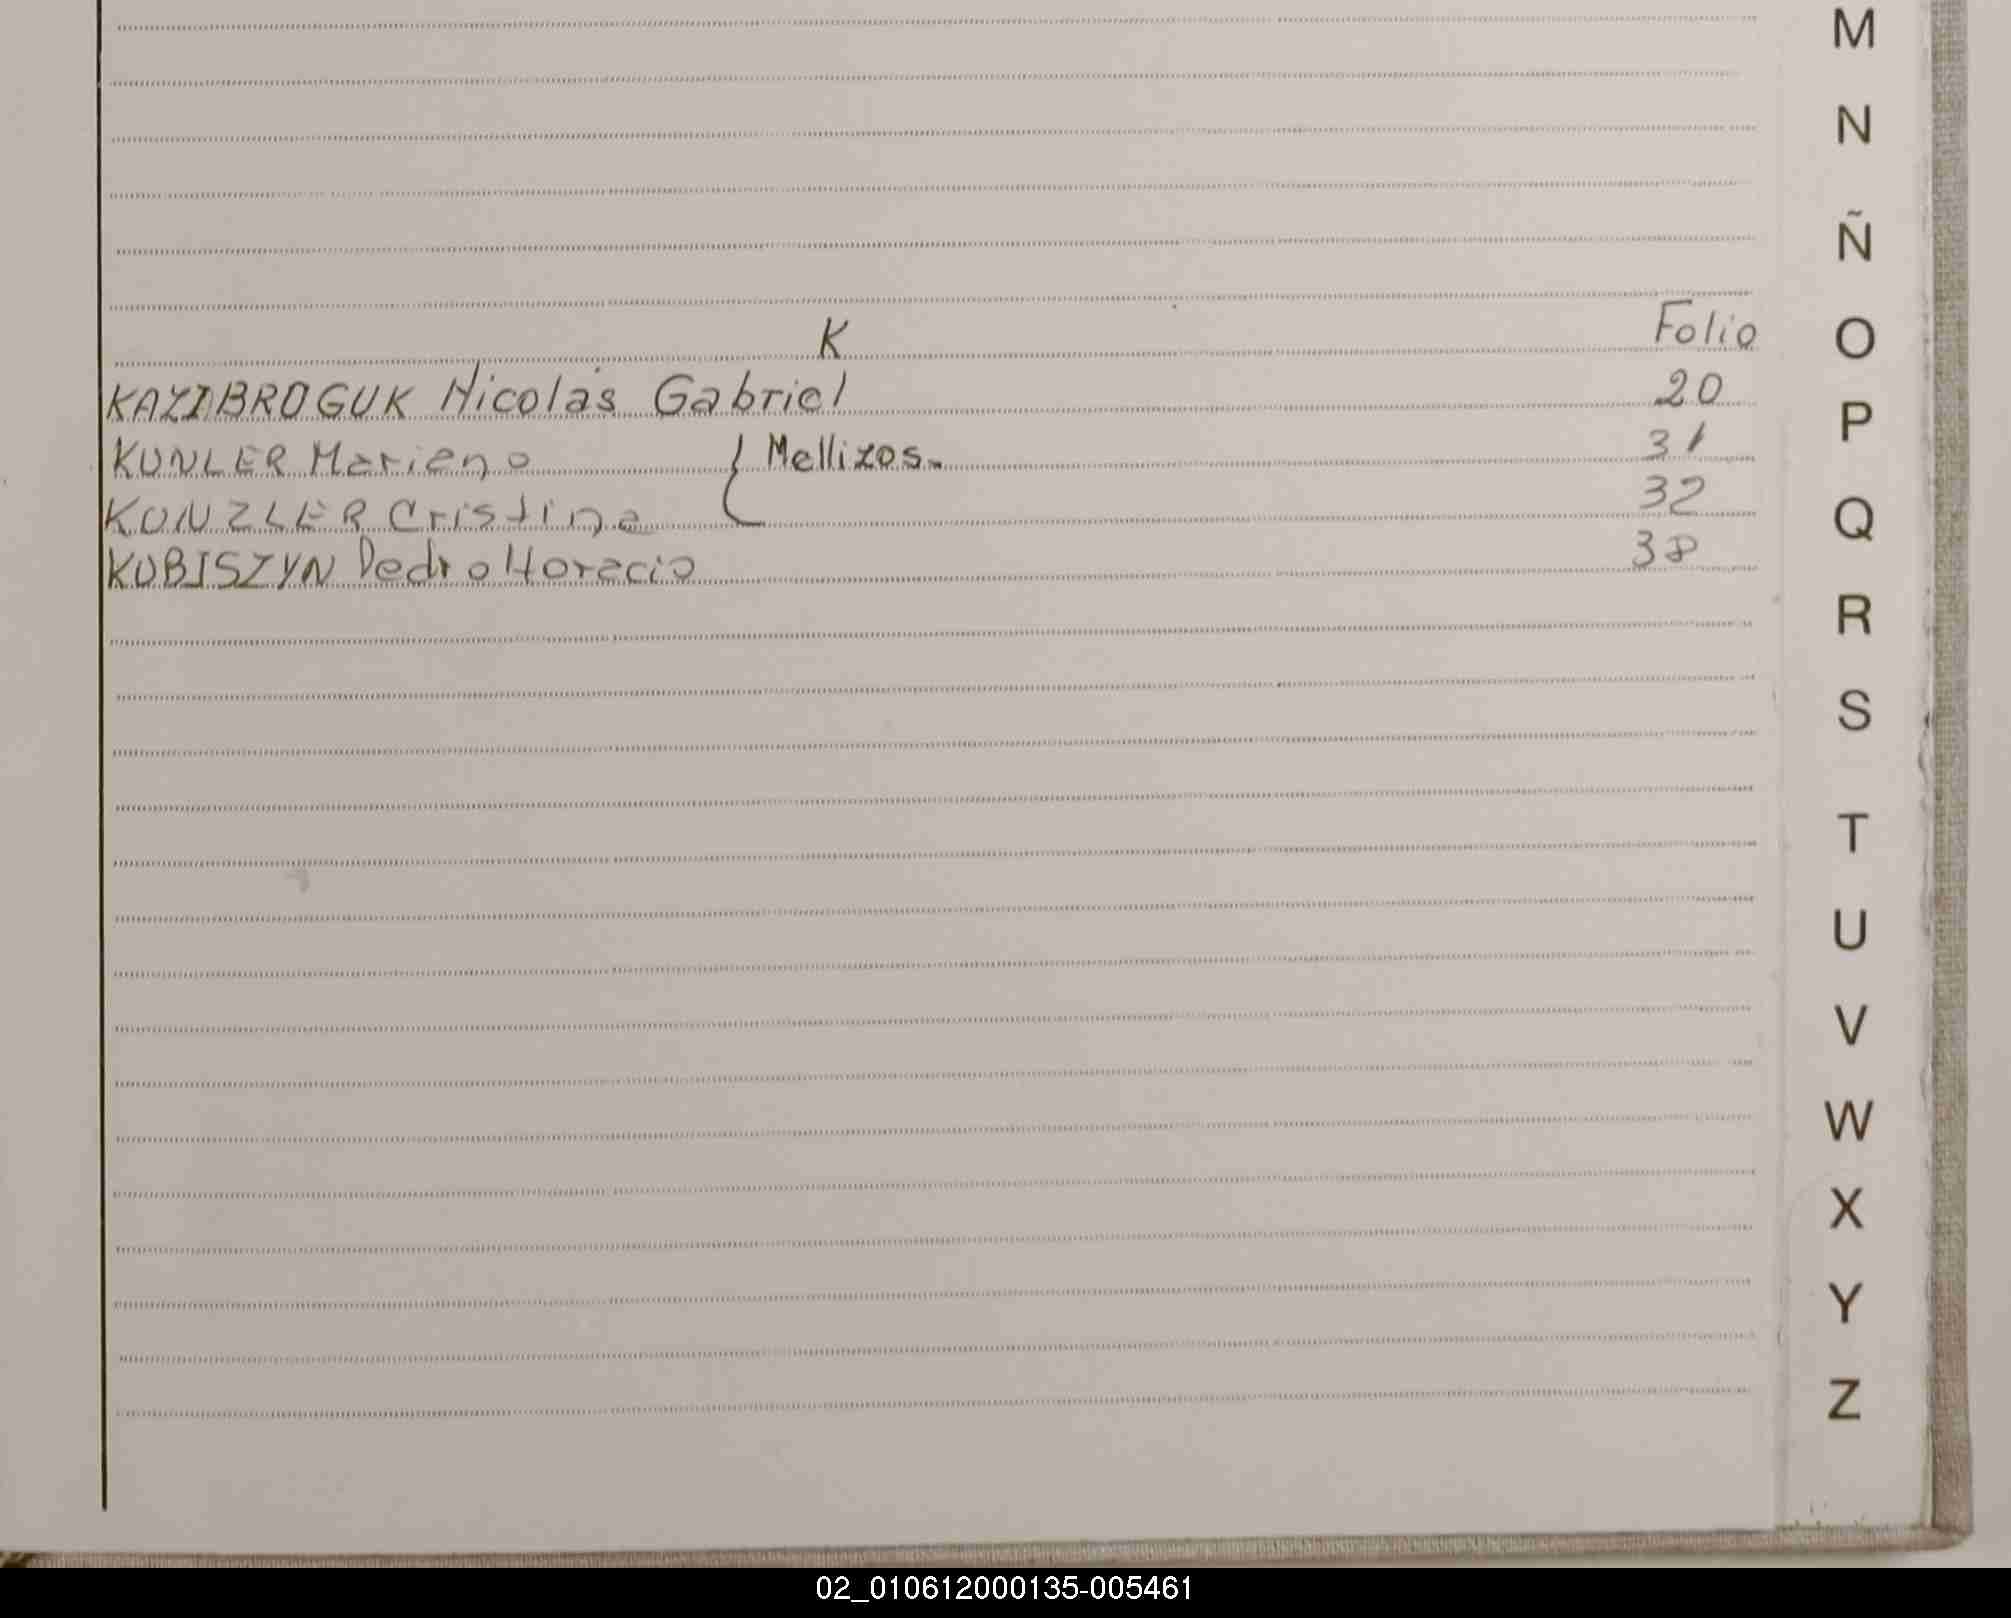 M
N
Ñ
O
P
Q
R
S
T
U
V
W
X
Y
Z
K Folio
KAZIBROGUK Nicolás Gabriel 20
KUNLER Mariano { Mellizos. 31
KUNZLER Cristina 32
KUBISZYN Pedro Horacio 38
02_010612000135-005461